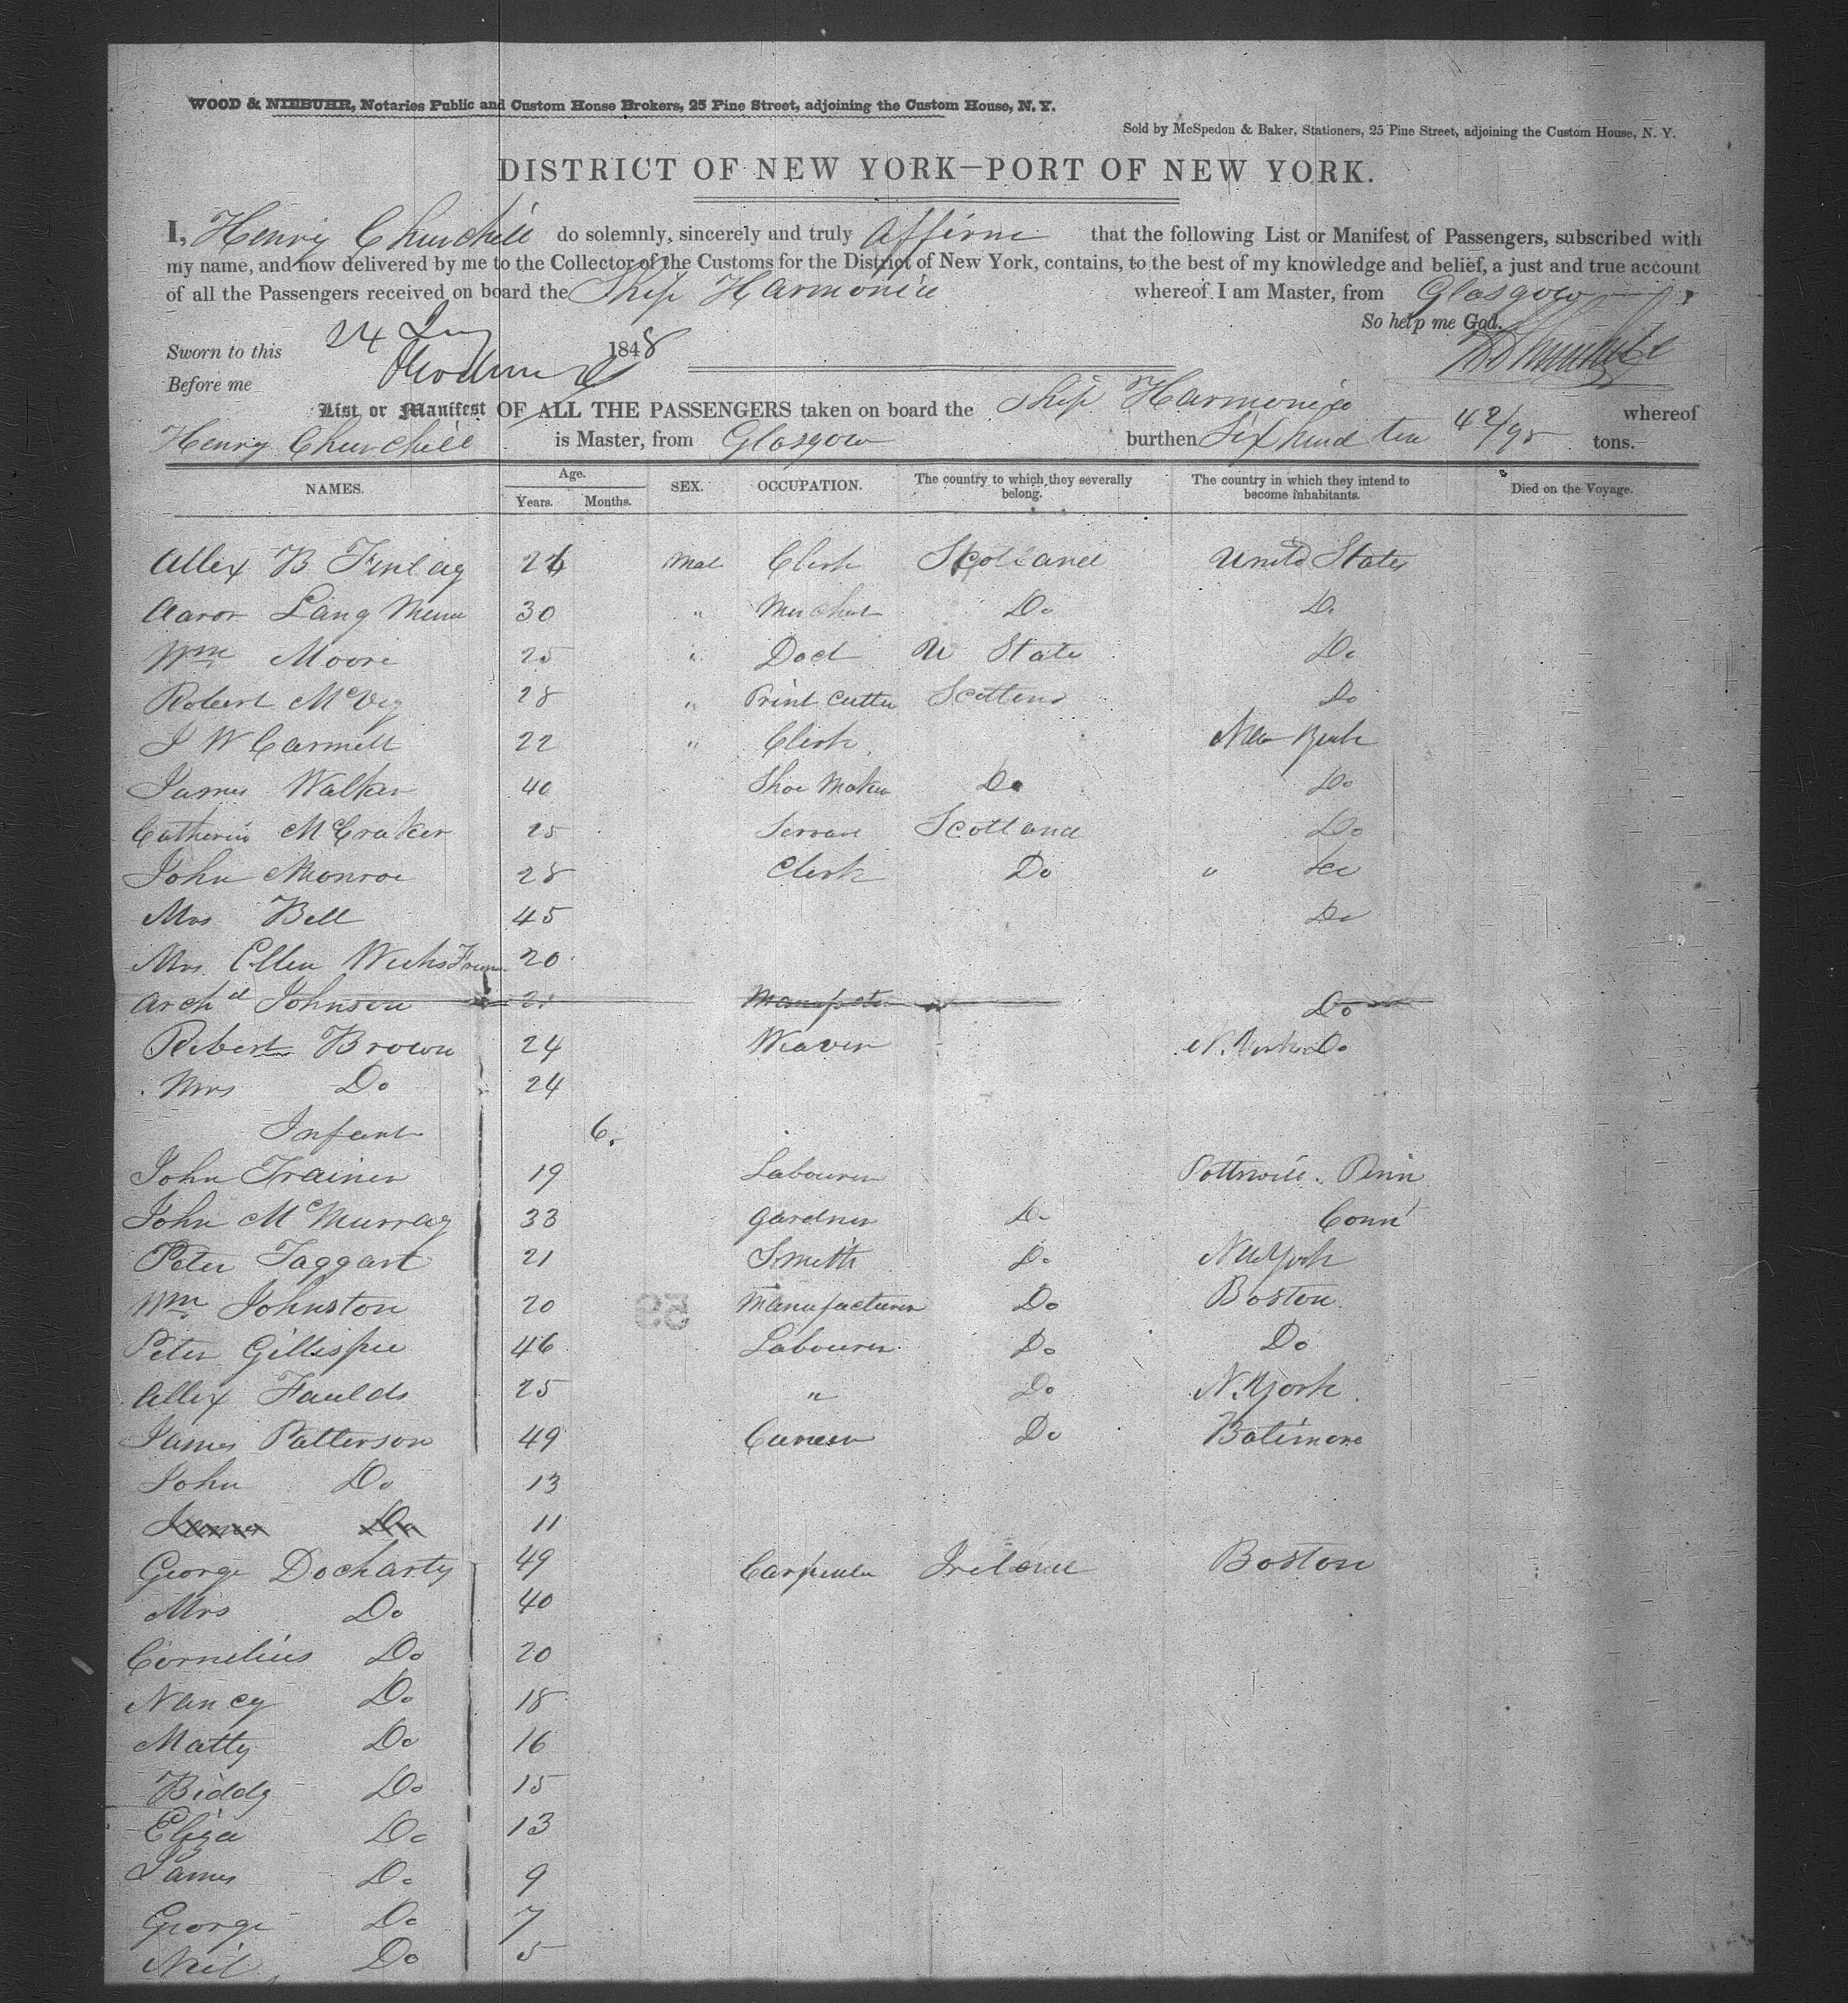 WOOD & NIEBUHR, Notaries Public and Custom House Brokers, 25 Pine Street, adjoining the Custom House, N. Y.
Sold by McSpedon & Baker, Stationers, 25 Pine Street, adjoining the Custom House, N. Y.
DISTRICT OF NEW YORK—PORT OF NEW YORK.
I, Henry Churchill do solemnly, sincerely and truly affirm that the following List or Manifest of Passengers, subscribed with
my name, and now delivered by me to the Collector of the Customs for the District of New York, contains, to the best of my knowledge and belief, a just and true account
of all the Passengers received on board the Ship Harmonia whereof I am Master, from Glasgow
So help me God.
Sworn to this 24 1848
Before me
List or Manifest OF ALL THE PASSENGERS taken on board the Ship Harmonia whereof
Henry Churchill is Master, from Glasgow burthen Six hund ten 42/95 tons.
NAMES. Age. Years. Months. SEX. OCCUPATION. The country to which they severally belong. The country in which they intend to become inhabitants. Died on the Voyage.
Allex B Finlay Mal Clerk Scotland United States
Aaron Lang 30 " Do Do
Wm Moore 25 " Doct U State Do
Robert McVey 28 " Print Cutter Scotland Do
J W Carmell 22 " Clerk New York
James Walker 40 Shoe Maker Do Do
Catherin McCraker 25 Servant Scotland Do
John Monroe 28 Clerk Do " Do
Mrs Bell 45 Do
Mrs Ellen 20
Archd Johnson Do
Robert Brown 24 Weaver N. York Do
Mrs Do 24
Infant 6
John Trainer 19 Labourer Pottsvill. Penn
John McMurray 33 Gardner Do Conn
Peter Taggart 21 Smith Do New York
Wm Johnston 20 Manufacturer Do Boston
Peter Gillispie 46 Labourer Do Do
Allex Faulds 25 " Do N. York
James Patterson 49 Do Batimore
John Do 13
James Do 11
George Docharty 49 Carpenter Ireland Boston
Mrs Do 40
Cornelius Do 20
Nancy Do 18
Matty Do 16
Biddy Do 15
Eliza Do 13
James Do 9
George Do 7
Neil Do 5